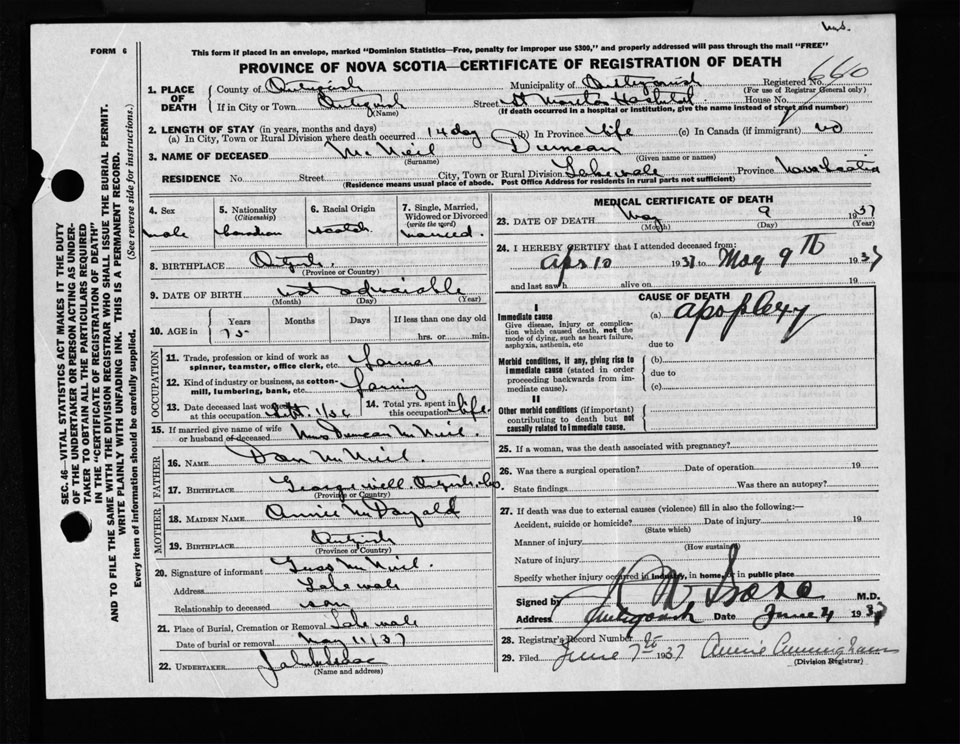 M.S.
FORM 6
This form if placed in an envelope, marked "Dominion Statistics—Free, penalty for improper use $300," and properly addressed will pass through the mail "FREE"
PROVINCE OF NOVA SCOTIA—CERTIFICATE OF REGISTRATION OF DEATH
SEC. 46—VITAL STATISTICS ACT MAKES IT THE DUTY
OF THE UNDERTAKER OR PERSON ACTING AS UNDER-
TAKER TO OBTAIN ALL THE PARTICULARS REQUIRED
IN THE "CERTIFICATE OF REGISTRATION OF DEATH"
AND TO FILE THE SAME WITH THE DIVISION REGISTRAR WHO SHALL ISSUE THE BURIAL PERMIT.
WRITE PLAINLY WITH UNFADING INK. THIS IS A PERMANENT RECORD.
Every item of information should be carefully supplied. (See reverse side for instructions.)
1. PLACE OF DEATH County of Antigonish Municipality of Antigonish Registered No. 660
(For use of Registrar General only)
If in City or Town Antigonish Street St Martha's Hospital House No.
(Name) (If death occurred in a hospital or institution, give the name instead of street and number)
2. LENGTH OF STAY (in years, months and days)
(a) In City, Town or Rural Division where death occurred 14 day (b) In Province life (c) In Canada (if immigrant) no
3. NAME OF DECEASED McNeil Duncan
(Surname) (Given name or names)
RESIDENCE No. Street City, Town or Rural Division Lakevale Province Nova Scotia
(Residence means usual place of abode. Post Office Address for residents in rural parts not sufficient)
4. Sex 5. Nationality (Citizenship) 6. Racial Origin 7. Single, Married, Widowed or Divorced (write the word)
male Canadian Scotch married.
8. BIRTHPLACE
(Province or Country)
9. DATE OF BIRTH not
(Month) (Day) (Year)
10. AGE in Years Months Days If less than one day old
75 hrs. or min.
OCCUPATION
11. Trade, profession or kind of work as spinner, teamster, office clerk, etc. Farmer
12. Kind of industry or business, as cotton-mill, lumbering, bank, etc. Farming
13. Date deceased last worked at this occupation Sept. 1936 14. Total yrs. spent in this occupation life
15. If married give name of wife or husband of deceased Mrs Duncan McNeil.
FATHER
16. NAME Dan McNeil.
17. BIRTHPLACE Georgeville. Co.
(Province or Country)
MOTHER
18. MAIDEN NAME Annie McDonald
19. BIRTHPLACE
(Province or Country)
20. Signature of informant McNeil.
Address Lakevale
Relationship to deceased son
21. Place of Burial, Cremation or Removal Lakevale
Date of burial or removal May 11/37
22. UNDERTAKER
(Name and address)
MEDICAL CERTIFICATE OF DEATH
23. DATE OF DEATH May 9 1937
(Month) (Day) (Year)
24. I HEREBY CERTIFY that I attended deceased from:
Apr 10 1937 to May 9th 1937
and last saw h alive on 19
CAUSE OF DEATH
I
Immediate cause (a) apoplexy
Give disease, injury or complication which caused death, not the mode of dying, such as heart failure, asphyxia, asthenia, etc
due to
Morbid conditions, if any, giving rise to immediate cause (stated in order proceeding backwards from immediate cause).
(b)
due to
(c)
II
Other morbid conditions (if important) contributing to death but not causally related to immediate cause.
25. If a woman, was the death associated with pregnancy?
26. Was there a surgical operation? Date of operation 19
State findings Was there an autopsy?
27. If death was due to external causes (violence) fill in also the following:—
Accident, suicide or homicide? Date of injury 19
(State which)
Manner of injury
(How sustained)
Nature of injury
Specify whether injury occurred in industry, in home, or in public place
Signed by M.D.
Address Antigonish Date June 4 1937
28. Registrar's Record Number
29. Filed June 7th 1937 Annie Cunningham
(Division Registrar)